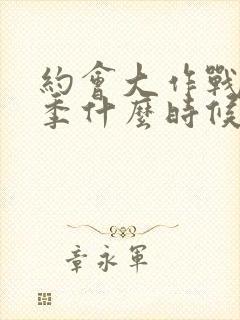 約會大作戰
季什麼時候
章永軍